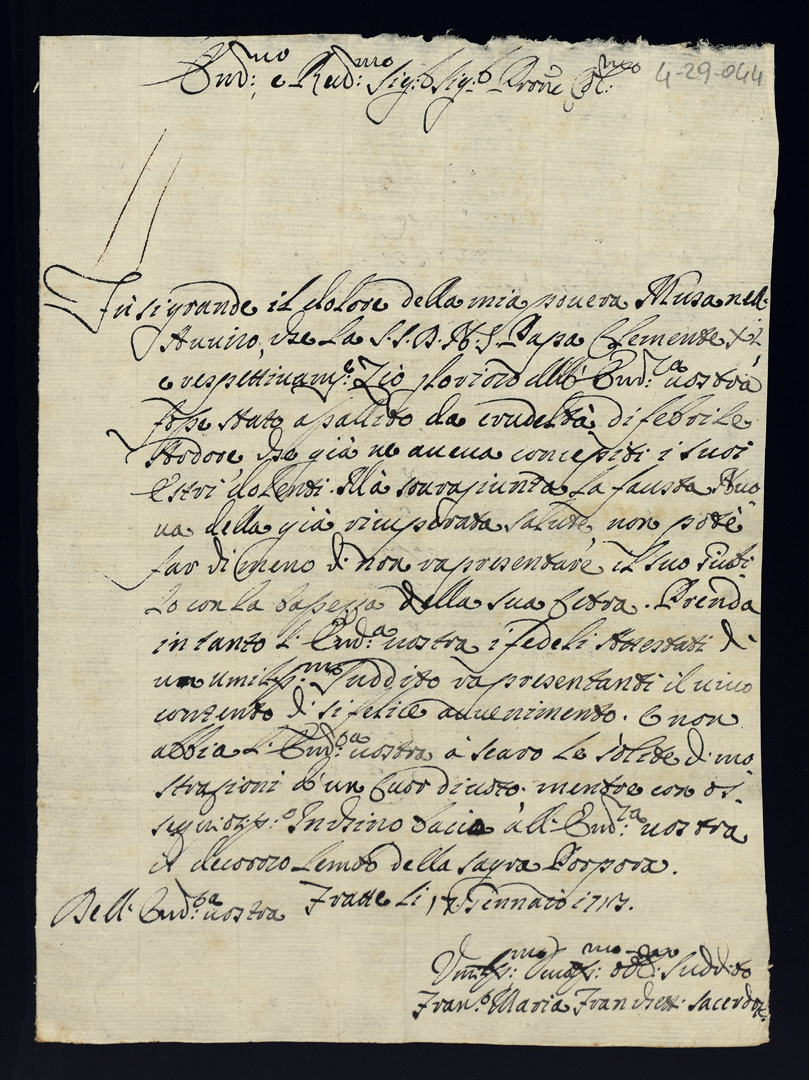 Em̃d:mo e Reud:mo Sig:r Sig:r Prone Col:mo
4-29-044
Fù si grande il dolore della mia pouera Musa nell'
Auuiso, che La S.S. D. N. S. Papa Clemente XI
e respettiuam:e Zio glorioso dell' Em̃d:za uostra
fosse stato assalito da crudeltà di febrile
Ardore, che già ne aueua concepiti i suoi
Estri dolenti. Mà souragiunta La fausta Nuo
ua della già ricuperata salute, non potè
far di meno di non rapresentare il suo giubi
Lo con La bassezza della sua Cetra. Prenda
in tanto L' Em̃d:za uostra i fedeli Attestati di
un umiliss:mo Suddito rapresentanti il uiuo
contento di si felice auuenimento. e non
abbia L' Em̃d:za uostra à scaro Le solite dimo
strazioni d'un Cuor diuoto. mentre con os
sequiosiss:o Inchino bacio all' Em̃d:za uostra
il decoroso Lembo della sagra Porpora.
Dell' Em̃d:za uostra Fratte Li 17 Gennaio 1717.
Umiliss:mo Diuotiss:mo ed Obl: Suddito
Fran:o Maria Franchett: Sacerdote